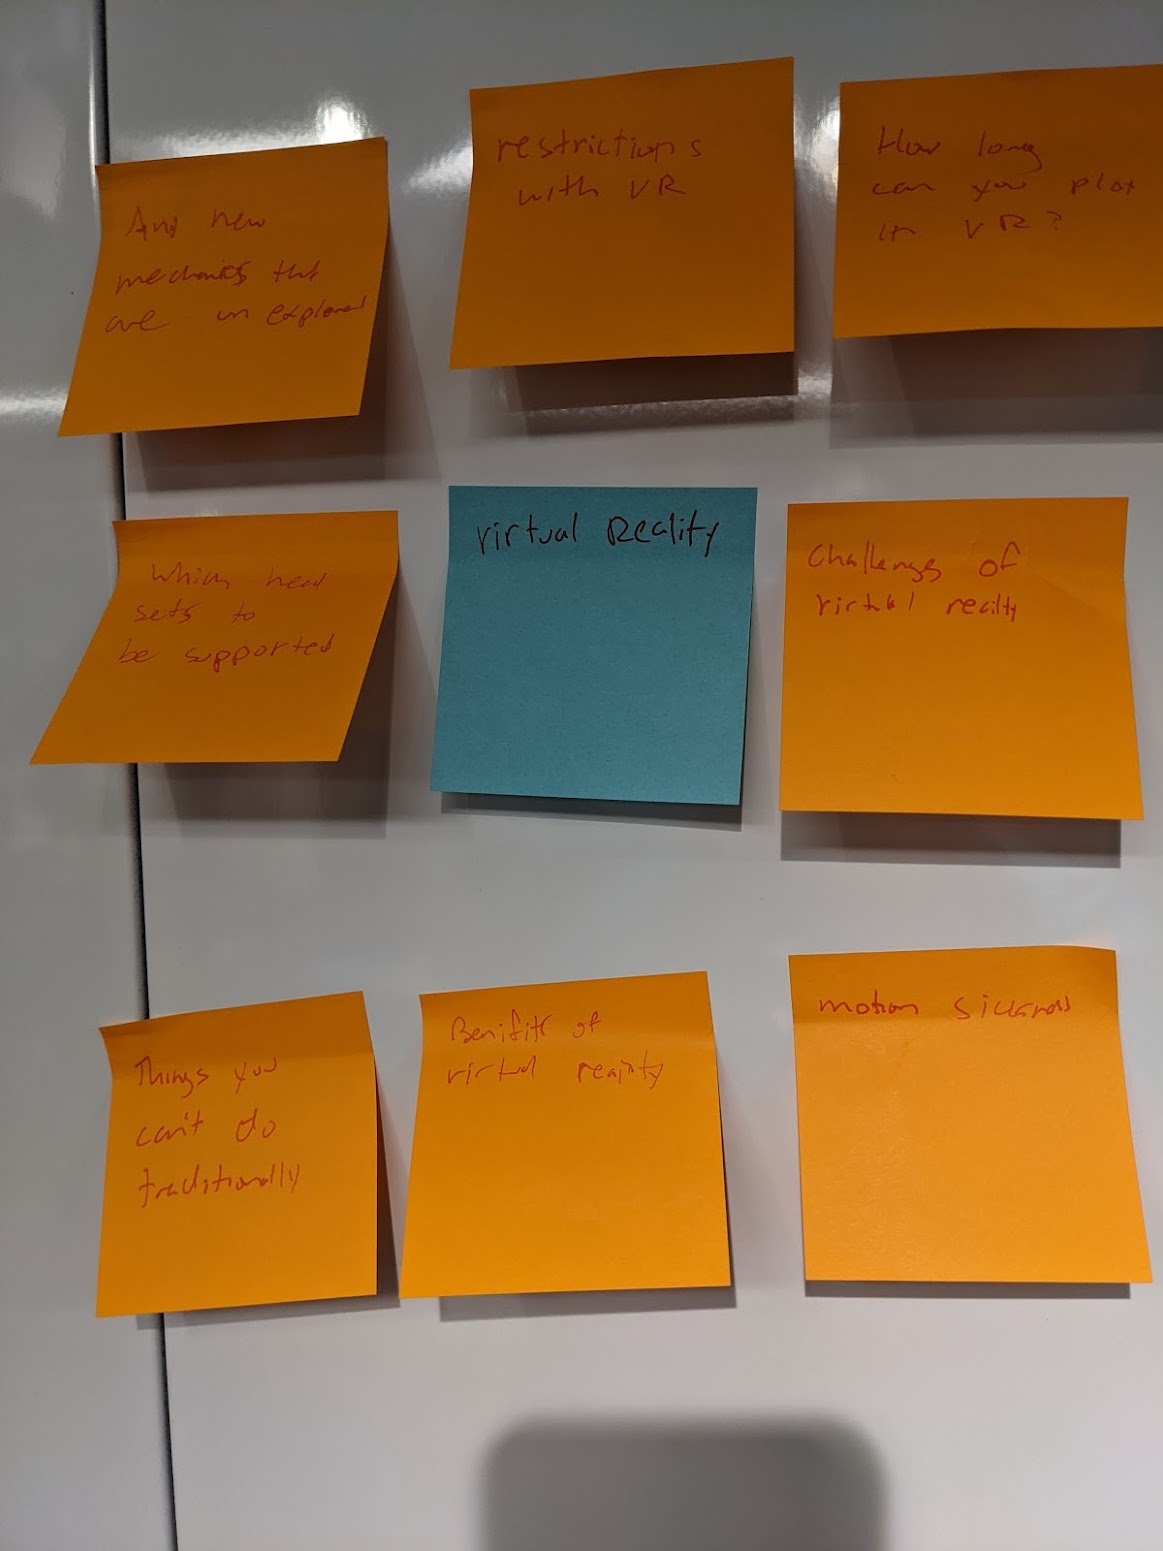 And new
mechanics that
are unexplored
restrictions
with VR
How long
can you play
in VR?
Which head
sets to
be supported
virtual Reality
Challenges of
virtual reality
Things you
can't do
traditionally
Benifits of
virtual reality
motion sickness